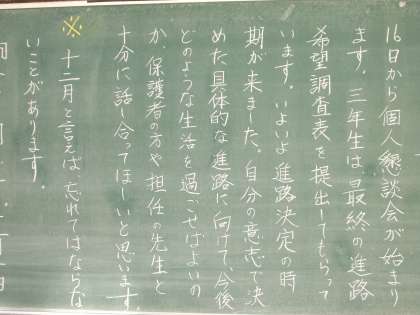 16日から個人懇談会が始まり
ます。三年生は、最終の進路
希望調査表を提出してもらって
います。いよいよ進路決定の時
期が来ました。自分の意志で決
めた具体的な進路に向けて、今後
どのような生活を過ごせばよいの
か、保護者の方や担任の先生と
十分に話し合ってほしいと思います。
※ 十二月と言えば、忘れてはならな
いことがあります。